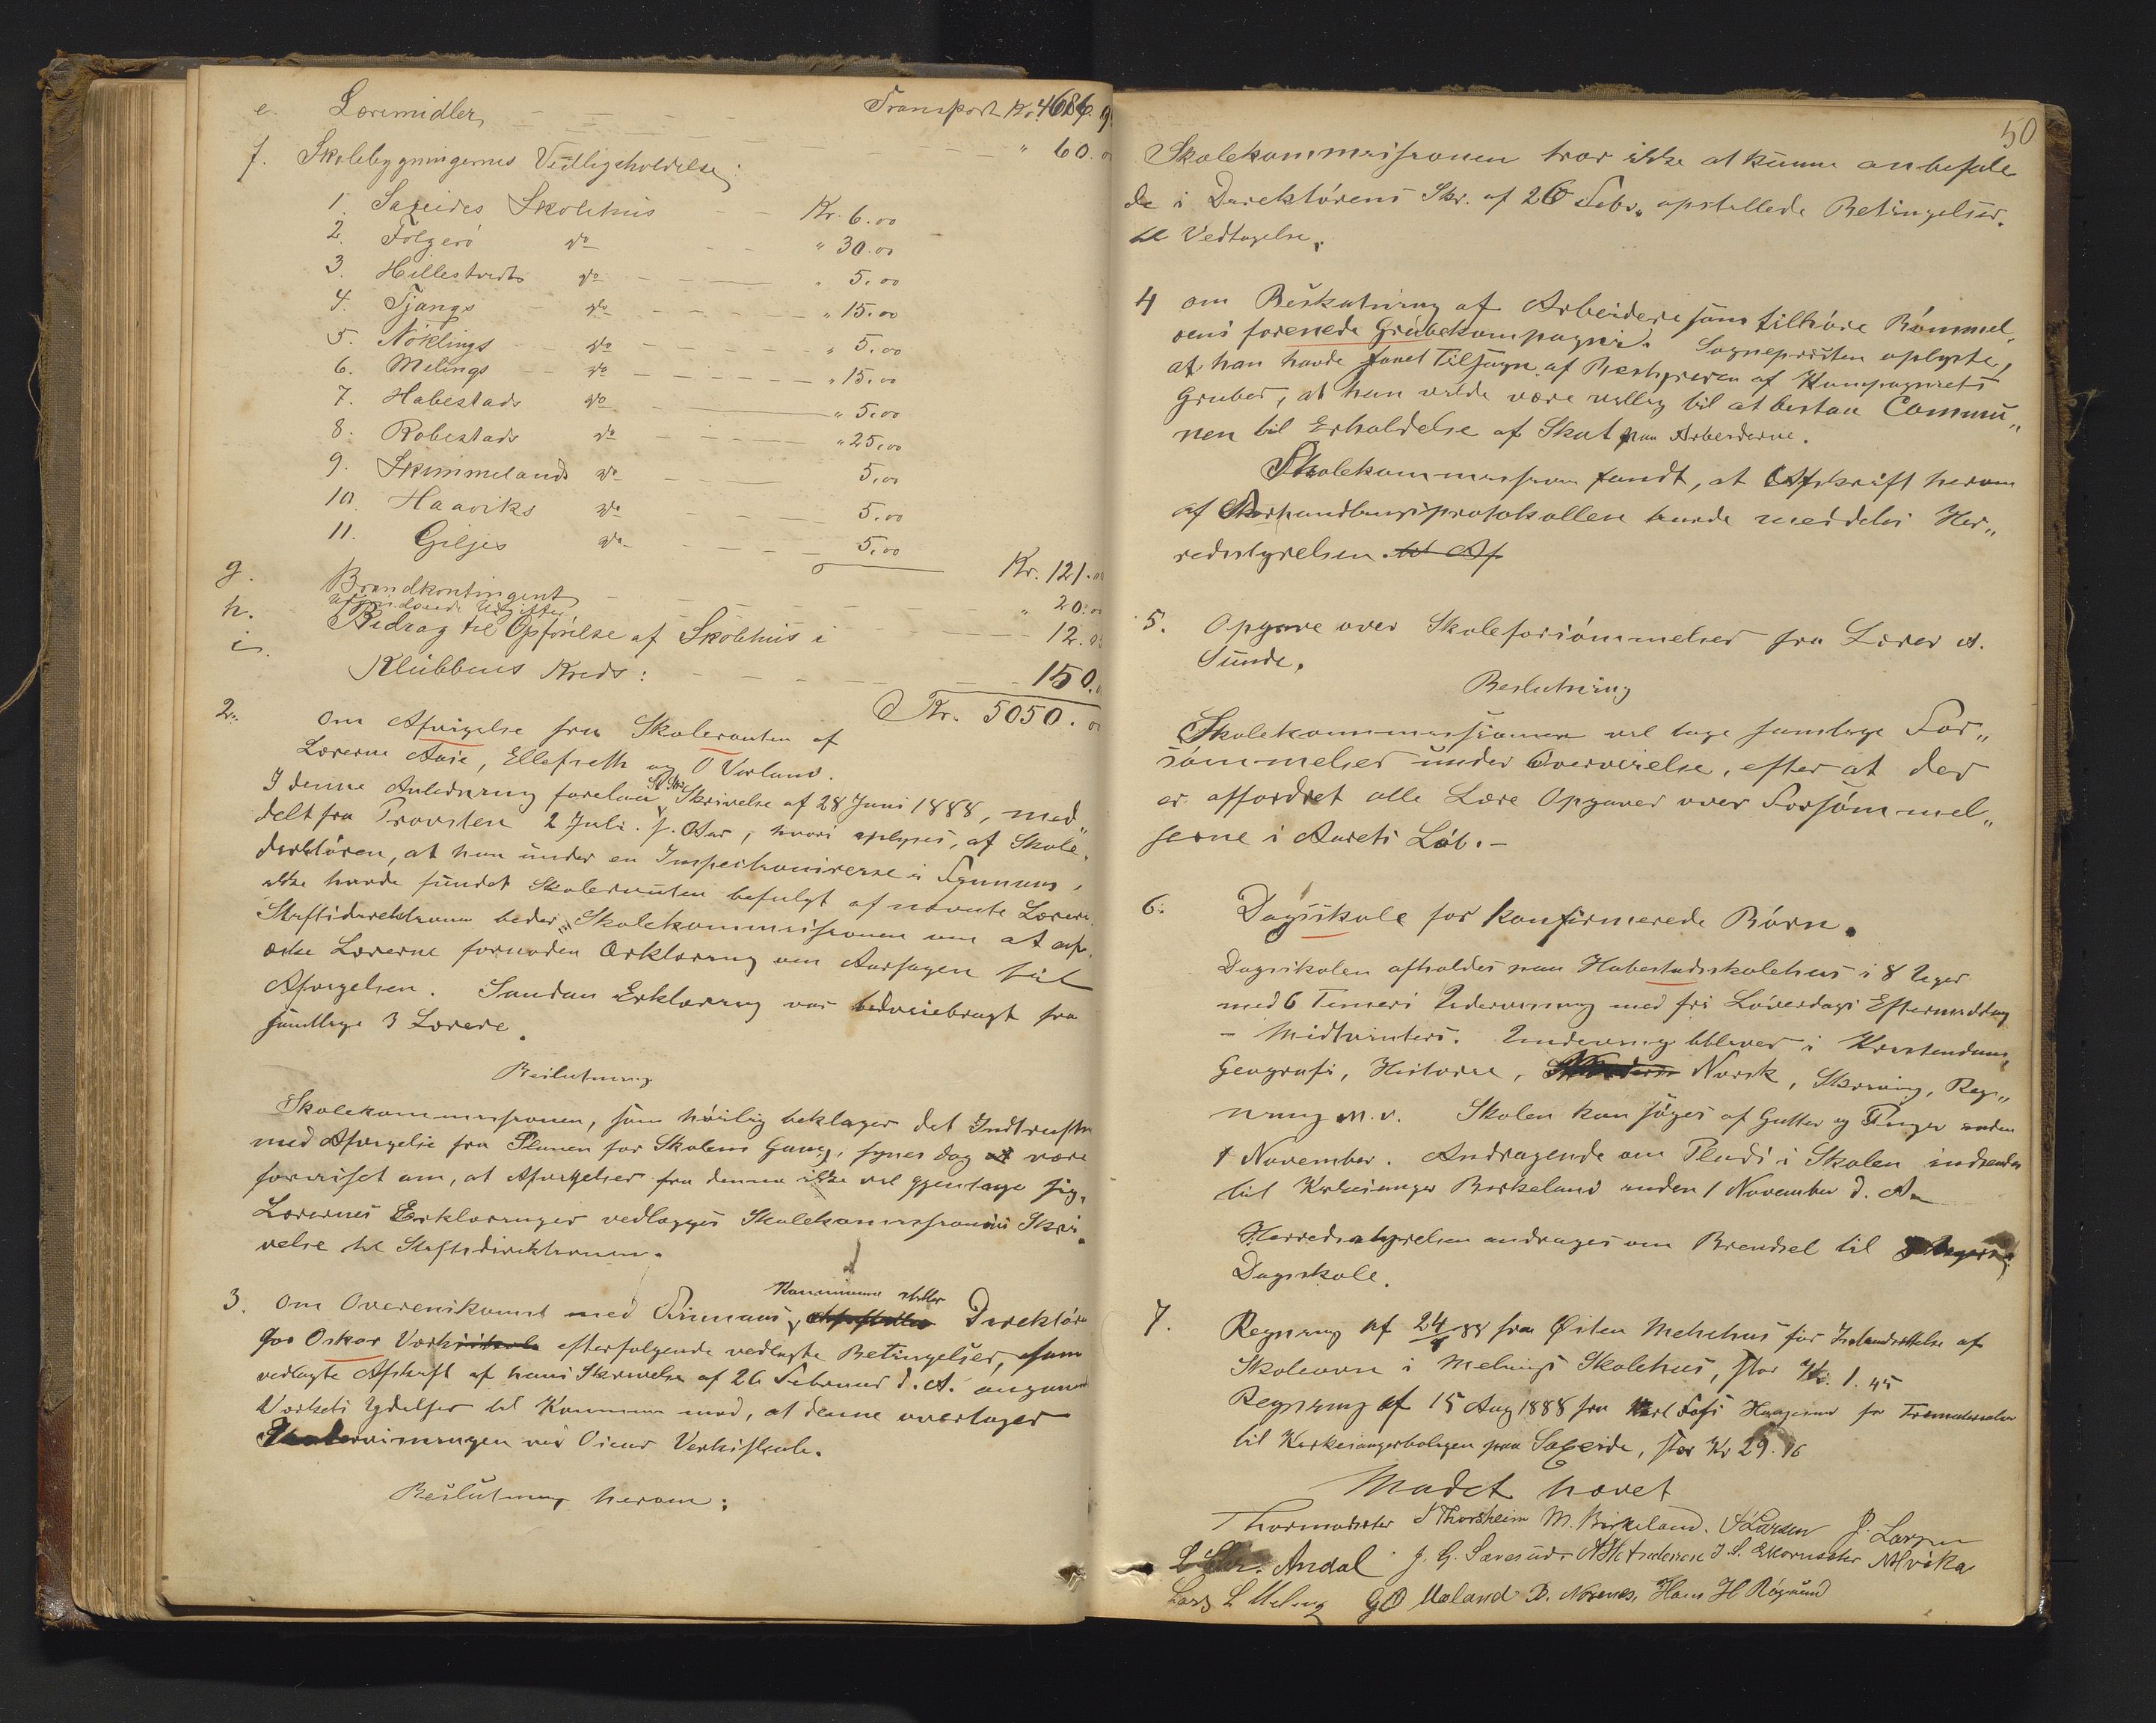 Transport Kr. 4686. 9
e. Læremidler, — — — — " 60. 0
f. Skolebygningernes Vedligeholdelse:
1. Sageides Skolehus — — Kr. 6.00
2. Folgerø do — — " 30.00
3. Hillestvedts do — — " 5.00
4. Tjongs do — — " 15.00
5. Nøklings do — — " 5.00
6. Melings do — — " 15.00
7. Habestads do — — " 5.00
8. Robestads do — — " 25.00
9. Skimmelands do — — 5.00
10. Haaviks do — — 5.00
11. Giljes do — — 5.00
Kr. 121.00
g. Brandkontingent — — " 20.00
h. Uforudseede Udgifter — — 12.0
i. Bidrag til Opførelse af Skolehus i
Klubbens Kreds: — — 150.0
Kr. 5050. 00
2. Om Afvigelse fra Skolerouten af
Lærerne Aase, Ellefseth og O Vorland.
I denne Anledning forelaa Skrivelse af 28 Juni 1888, med„
delt fra Provsten 2 Juli s. Aar, hvori oplyses, af Skole„
direktøren, at han under en Inspektionsreise i Finnaas,
ikke havde fundet Skolerouten befulgt af nævnte Lærere.
Stiftsdirektionen beder Skolekommissionen om at af„
æske Lærerne fornøden Erklæring om Aarsagen til
Afvigelsen. Saadan Erklæring var tilveiebragt fra
samtlige 3 Lærere.
Beslutning
Skolekommissionen, som høilig beklager det Indtrufne
med Afvigelse fra Planen for Skolens Gang, synes dog at være
forvisset om, at Afvigelser fra denne ikke vil gjentage sig.
Lærernes Erklæringer vedlægges Skolekommissionens Skri„
velse til Stiftsdirektionen.
3. Om Overenskomst med Finnaas Kommune Direktør
for Oskar Værk efterfølgende vedlagte Betingelser, som
vedlagte Afskrift af hans Skrivelse af 26 Februar d. A. angaaende
Værkets Ydelser til Kommunen mod, at denne overtager
Undervisningen ved Oscar Verksskole.
Beslutning herom:
50
Skolekommissionen tror ikke at kunne anbefale
de i Direktørens Skr. af 26 Febr. opstillede Betingelser
til Vedtagelse.
4 Om Beskatning af Arbeidere som tilhøre Bømmel„
øens forenede Grubekompagni. Sognepresten oplyste,
at han havde faaet Tilsagn af Bestyreren af Kompagniets
Gruber, at han vilde være villig til at bistaa Commu„
nen til Erholdelse af Skat paa Arbeiderne.
Skolekommissionen fandt, at Afskrift herom
af Forhandlingsprotokollen burde meddeles Her„
redsstyrelsen.
5. Opgave over Skoleforsømmelser fra Lærer A.
Sunde.
Beslutning
Skolekommissionen vil tage samtlige For„
sømmelser under Overveielse, efter at der
er affordret alle Lære Opgaver over Forsømmel„
serne i Aarets Løb. —
6. Dagsskole for konfirmerede Børn.
Dagsskolen afholdes paa Habestadsskolehus i 8 Uger
med 6 Timers Undervisning med fri Løverdags Eftermiddag
— Midtvinters. Undervisning bliver i Kristendom,
Geografi, Historie, Norsk, Skrivning, Reg„
ning m. v. Skolen kan søges af Gutter og Piger inden
1 November. Andragende om Plads i Skolen indsendes
til Kirkesanger Birkeland inden 1 November d. A.
Herredsstyrelsen andrages om Brendsel til
Dagsskole.
7. Regning af 24/ 88 fra Østen Mehehus for Istandsættelse af
Skoleovn i Melings Skolehus, stor Kr. 1.45
Regning af 15 Aug 1888 fra Haagesund for Træmaterialer
til Kirkesangerboligen paa Sageide, stor Kr 29.16
Mødet hævet
Thormodsæter S Thorsheim M. Birkeland. Larsen J. Larsen
Andal J. G. Særsund. J. S. Ekornsæter N Alvika
Lars L Meling G O Uoland B. Notenes, Hans H Røgsund